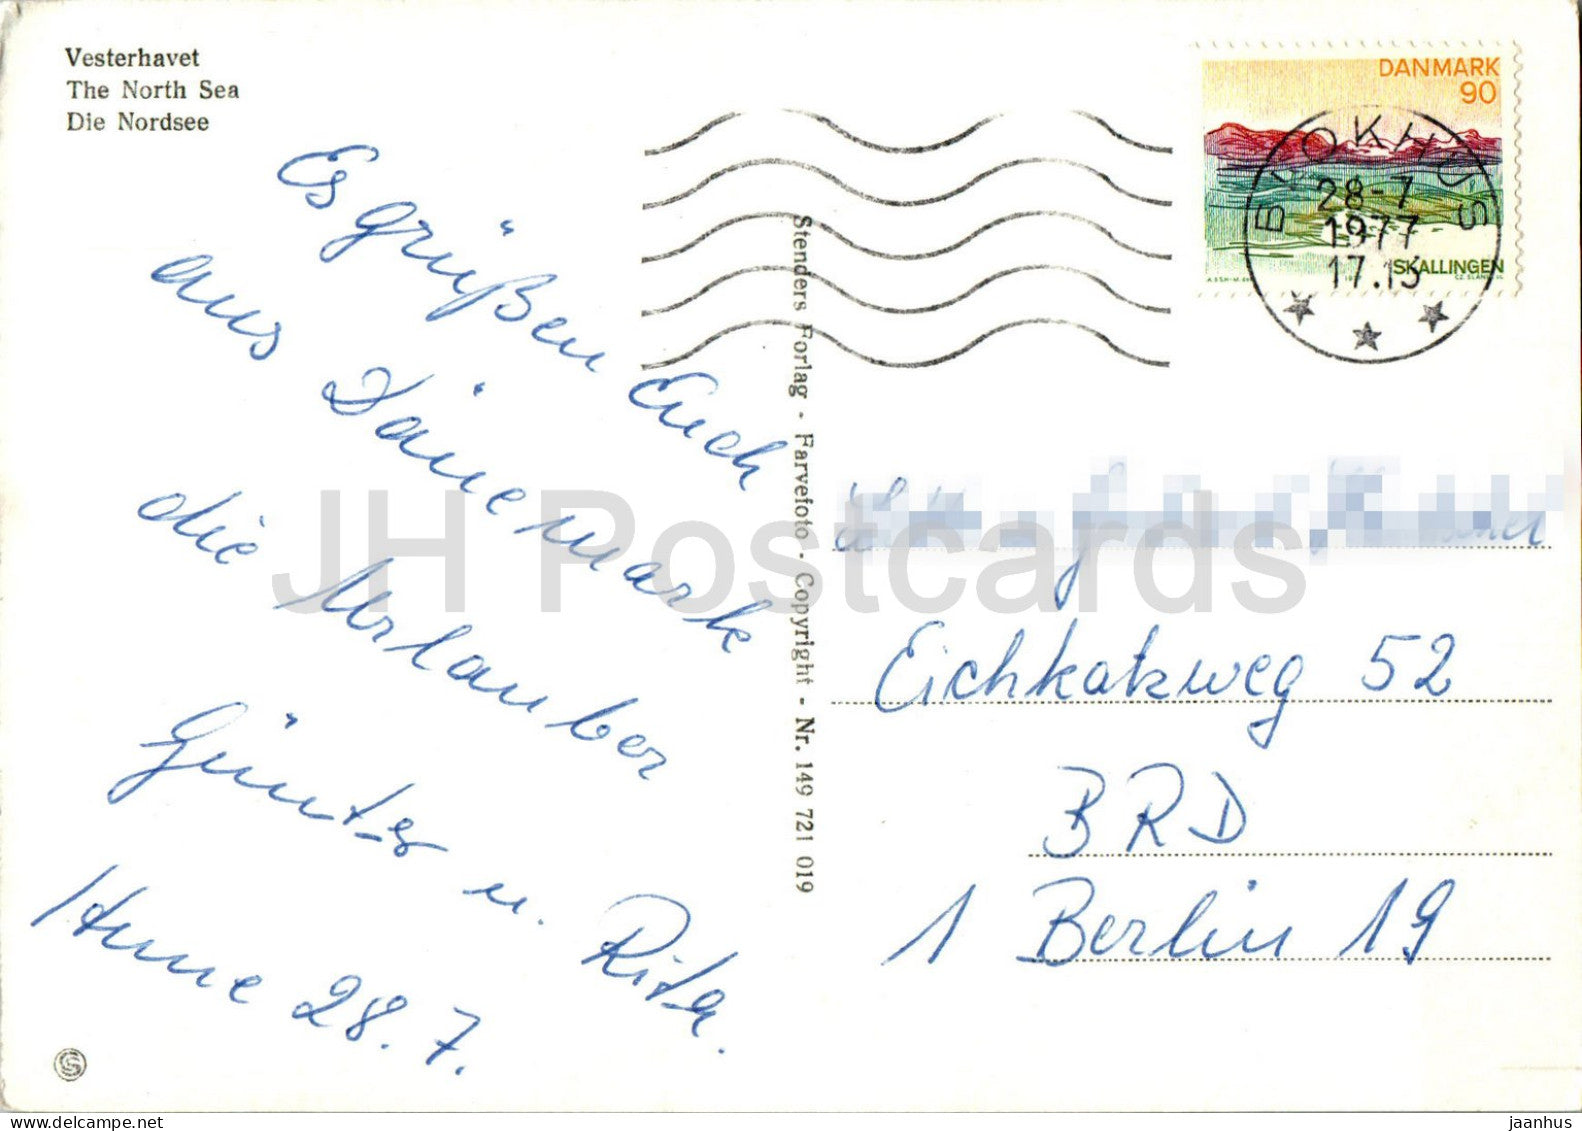 Vesterhavet
The North Sea
Die Nordsee
Es grüßen Euch
aus Dänemark
die Urlauber
Günter u. Rita.
Hune 28.7.
Stenders Forlag - Farvefoto - Copyright - Nr. 149 721 019
DANMARK
90
SKALLINGEN
BROKHUS
28-7
1977
17.15
Eichkatzweg 52
BRD
1 Berlin 19
JH Postcards
Vesterhavet.net
jaanhus